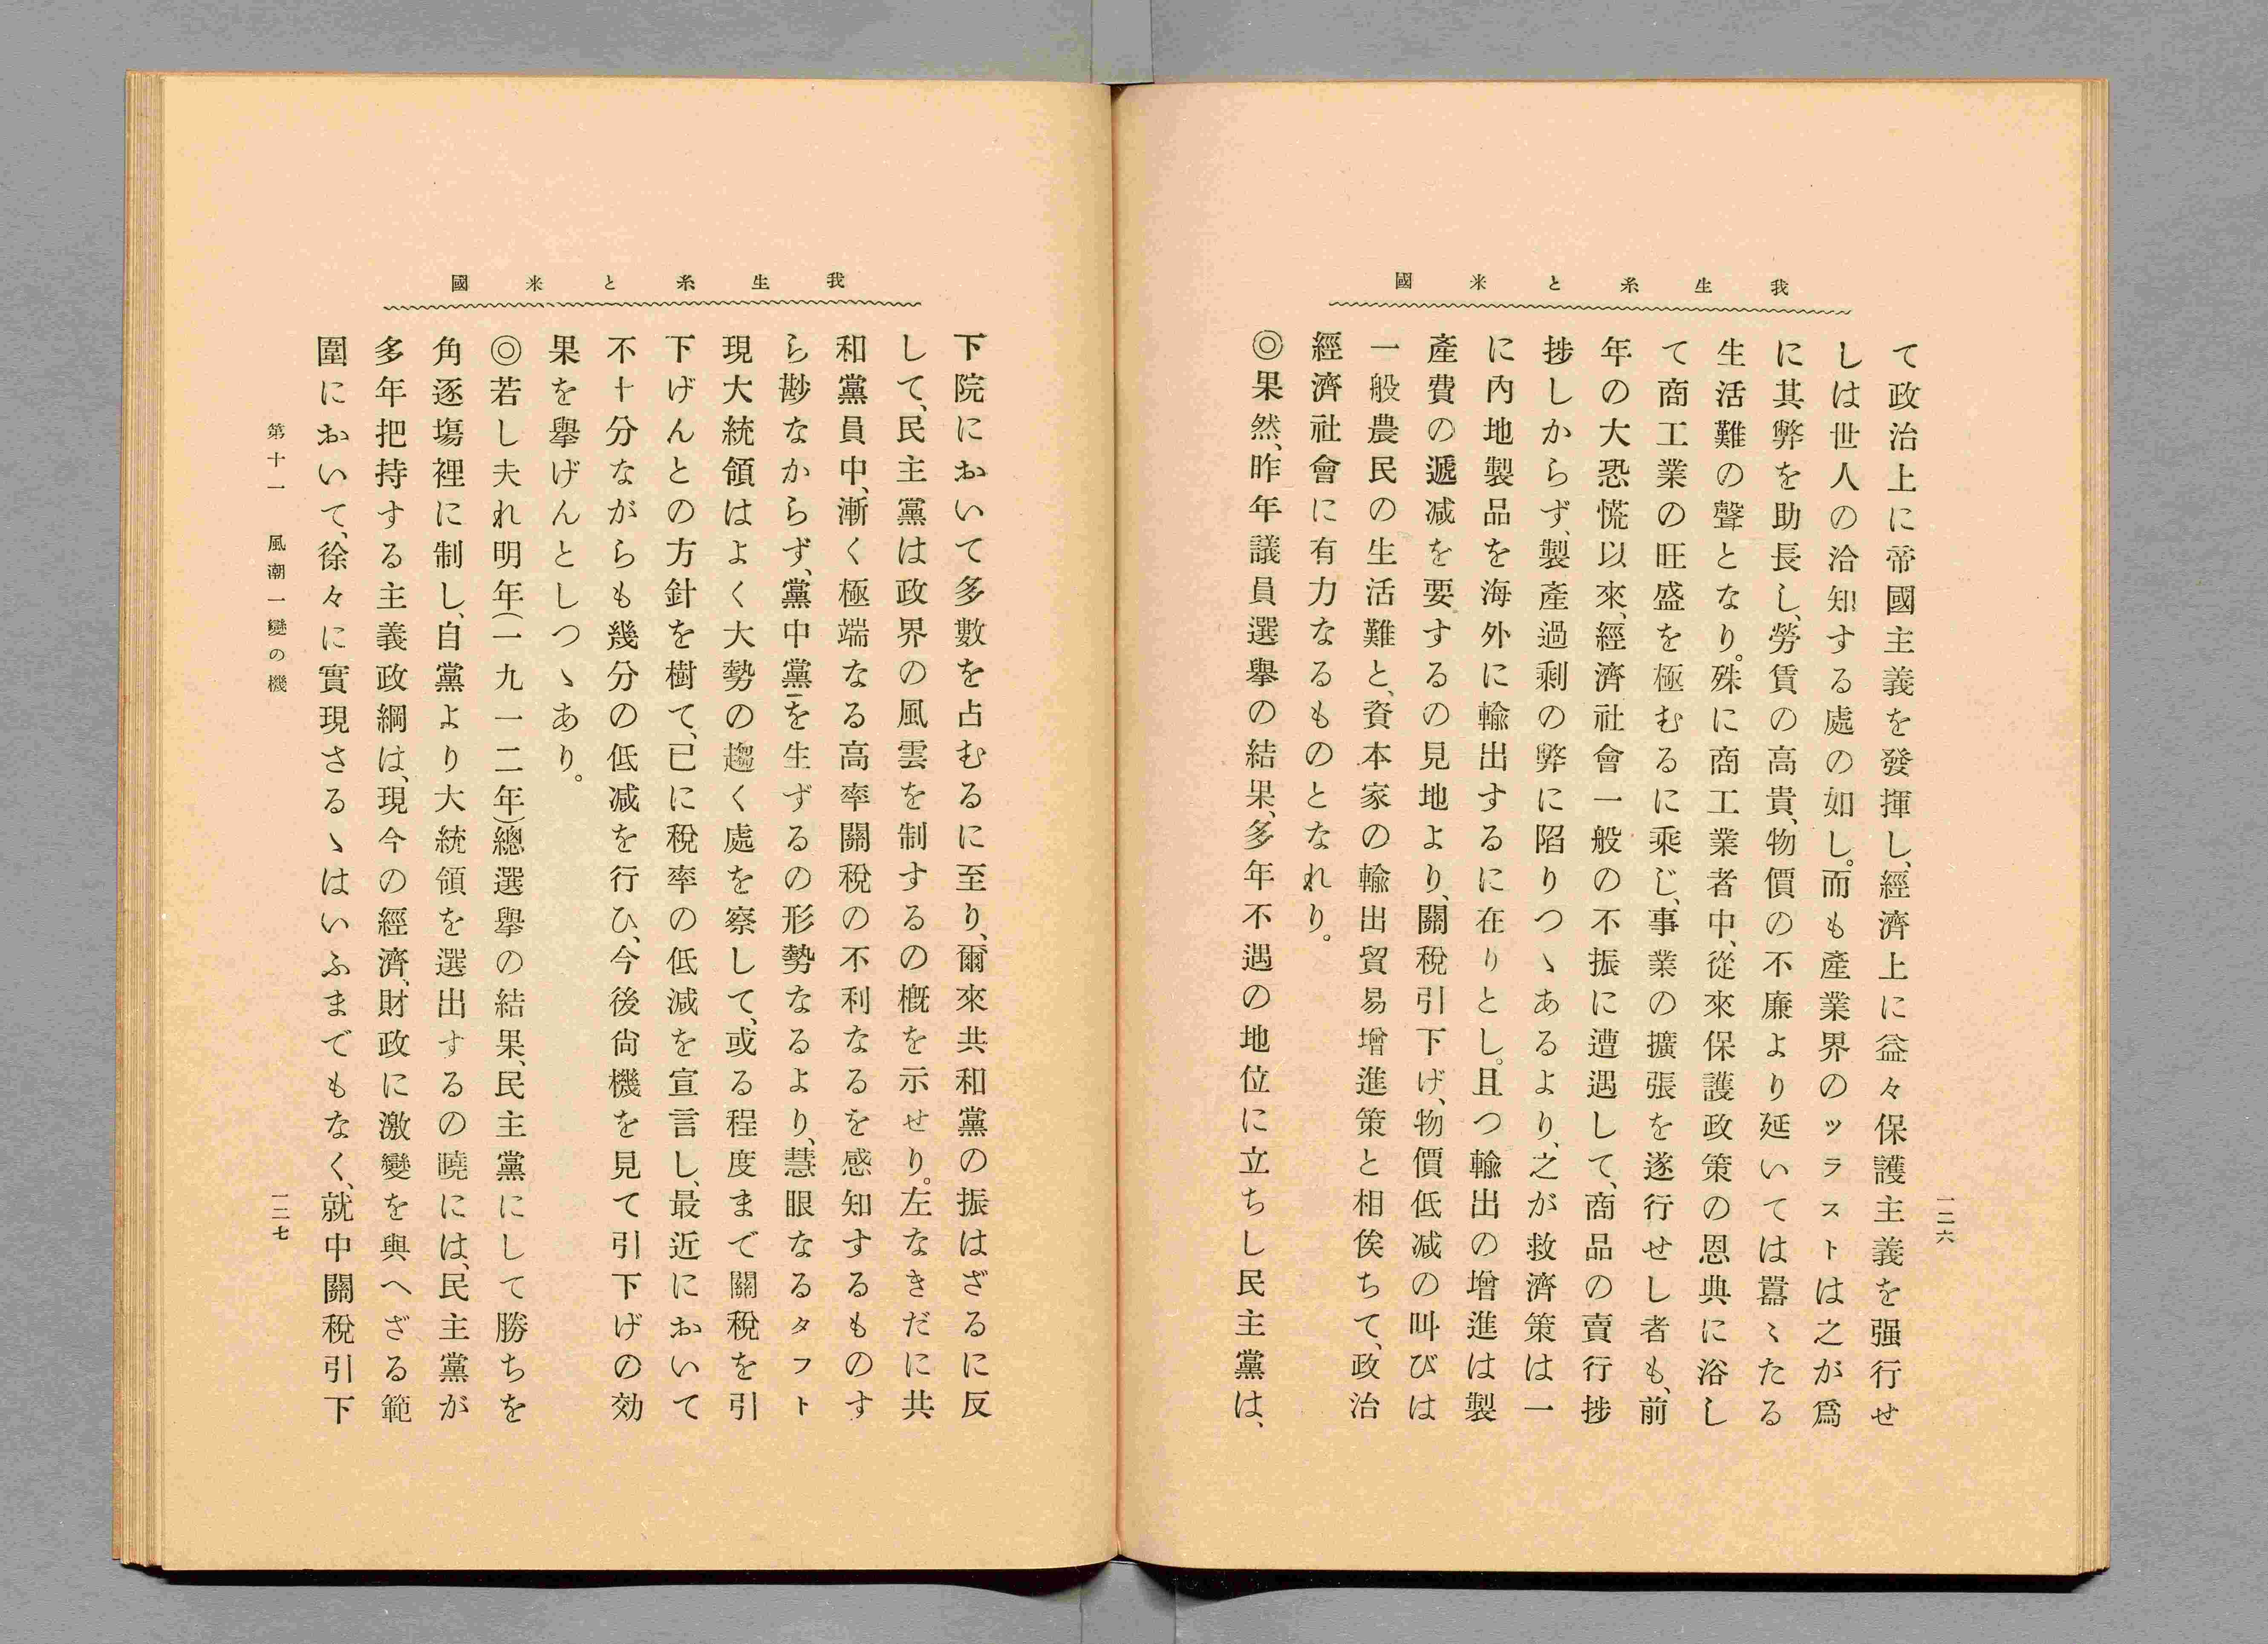 我生糸と米國
一二六
て政治上に帝國主義を發揮し、經濟上に益々保護主義を强行せ
しは世人の洽知する處の如し。而も產業界のツラストは之が爲
に其弊を助長し、勞賃の高貴、物價の不廉より延いては囂〻たる
生活難の聲となり。殊に商工業者中、從來保護政策の恩典に浴し
て商工業の旺盛を極むるに乘じ、事業の擴張を遂行せし者も、前
年の大恐慌以來、經濟社會一般の不振に遭遇して、商品の賣行捗
捗しからず、製產過剩の弊に陷りつゝあるより、之が救濟策は一
に內地製品を海外に輸出するに在りとし。且つ輸出の增進は製
產費の遞减を要するの見地より、關稅引下げ、物價低减の叫びは
一般農民の生活難と、資本家の輸出貿易增進策と相俟ちて、政治
經濟社會に有力なるものとなれり。
◎果然、昨年議員選擧の結果、多年不遇の地位に立ちし民主黨は、
我生糸と米國
下院において多數を占むるに至り、爾來共和黨の振はざるに反
して、民主黨は政界の風雲を制するの槪を示せり。左なきだに共
和黨員中、漸く極端なる高率關稅の不利なるを感知するものす
ら尠なからず、黨中黨を生ずるの形勢なるより、慧眼なるタフト
現大統領はよく大勢の趨く處を察して、或る程度まで關稅を引
下げんとの方針を樹て、已に稅率の低減を宣言し、最近において
不十分ながらも幾分の低减を行ひ、今後尙機を見て引下げの効
果を擧げんとしつゝあり。
◎若し夫れ明年(一九一二年)總選擧の結果、民主黨にして勝ちを
角逐塲裡に制し、自黨より大統領を選出するの曉には、民主黨が
多年把持する主義政綱は、現今の經濟、財政に激變を與へざる範
圍において、徐々に實現さるゝはいふまでもなく、就中關稅引下
第十一 風潮一變の機
一二七